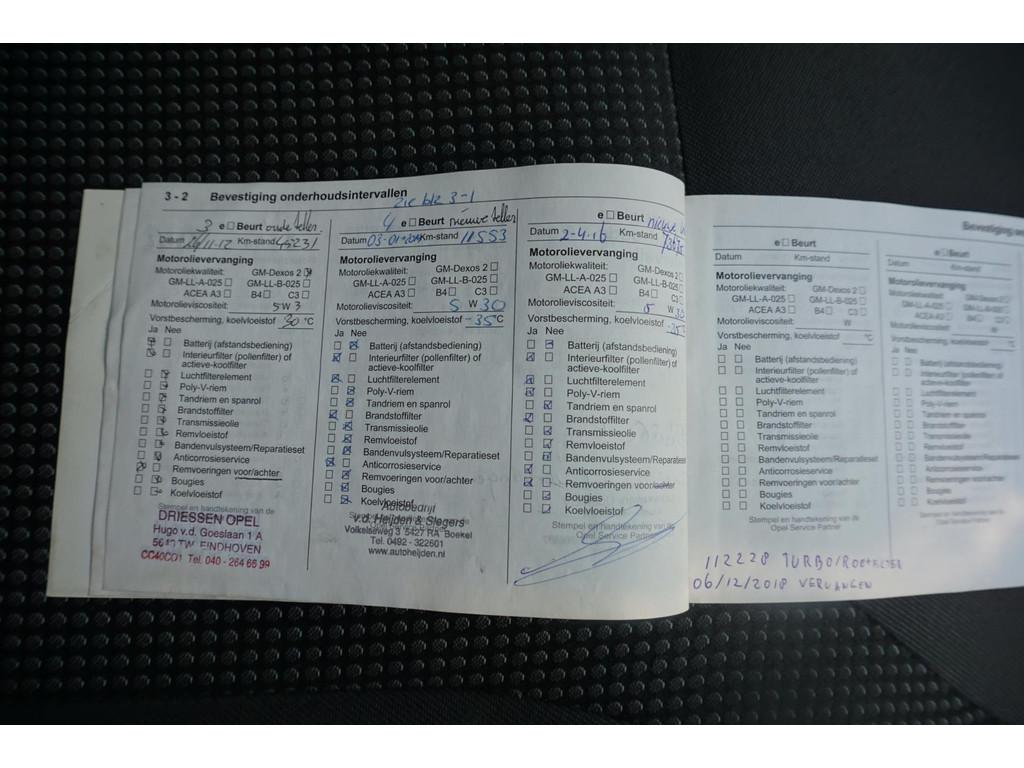 3 - 2 Bevestiging onderhoudsintervallen
zie blz 3-1
3 e Beurt oude teller
Datum Km-stand 45231
Motorolievervanging
Motoroliekwaliteit: GM-Dexos 2
GM-LL-A-025 GM-LL-B-025
ACEA A3 B4 C3
Motorolieviscositeit: 5 W 3
Vorstbescherming, koelvloeistof 30 °C
Ja Nee
Batterij (afstandsbediening)
Interieurfilter (pollenfilter) of
actieve-koolfilter
Luchtfilterelement
Poly-V-riem
Tandriem en spanrol
Brandstoffilter
Transmissieolie
Remvloeistof
Bandenvulsysteem/Reparatieset
Anticorrosieservice
Remvoeringen voor/achter
Bougies
Koelvloeistof
Stempel en handtekening van de
DRIESSEN OPEL
Hugo v.d. Goeslaan 1 A
5613 TW EINDHOVEN
Tel. 040 - 264 65 99
4 e Beurt nieuwe teller
Datum Km-stand 11553
Motorolievervanging
Motoroliekwaliteit: GM-Dexos 2
GM-LL-A-025 GM-LL-B-025
ACEA A3 B4 C3
Motorolieviscositeit: 5 W 30
Vorstbescherming, koelvloeistof -35 °C
Ja Nee
Batterij (afstandsbediening)
Interieurfilter (pollenfilter) of
actieve-koolfilter
Luchtfilterelement
Poly-V-riem
Tandriem en spanrol
Brandstoffilter
Transmissieolie
Remvloeistof
Bandenvulsysteem/Reparatieset
Anticorrosieservice
Remvoeringen voor/achter
Bougies
Koelvloeistof
Autobedrijf
v.d. Heijden & Slegers
Volkelseweg 3 5427 RA Boekel
Tel. 0492 - 322601
www.autoheijden.nl
e Beurt
Datum 2-4-16 Km-stand
Motorolievervanging
Motoroliekwaliteit: GM-Dexos 2
GM-LL-A-025 GM-LL-B-025
ACEA A3 B4 C3
Motorolieviscositeit: 5 W 30
Vorstbescherming, koelvloeistof -35 °C
Ja Nee
Batterij (afstandsbediening)
Interieurfilter (pollenfilter) of
actieve-koolfilter
Luchtfilterelement
Poly-V-riem
Tandriem en spanrol
Brandstoffilter
Transmissieolie
Remvloeistof
Bandenvulsysteem/Reparatieset
Anticorrosieservice
Remvoeringen voor/achter
Bougies
Koelvloeistof
Stempel en handtekening van de
Opel Service Partner
e Beurt
Datum Km-stand
Motorolievervanging
Motoroliekwaliteit: GM-Dexos 2
GM-LL-A-025 GM-LL-B-025
ACEA A3 B4 C3
Motorolieviscositeit: W
Vorstbescherming, koelvloeistof °C
Ja Nee
Batterij (afstandsbediening)
Interieurfilter (pollenfilter) of
actieve-koolfilter
Luchtfilterelement
Poly-V-riem
Tandriem en spanrol
Brandstoffilter
Transmissieolie
Remvloeistof
Bandenvulsysteem/Reparatieset
Anticorrosieservice
Remvoeringen voor/achter
Bougies
Koelvloeistof
Stempel en handtekening van de
Opel Service Partner
112228 TURBO/ROETFILTER
06/12/2018 VERVANGEN
e Beurt
Datum Km-stand
Motorolievervanging
Motoroliekwaliteit: GM-Dexos 2
GM-LL-A-025 GM-LL-B-025
ACEA A3 B4 C3
Motorolieviscositeit: W
Vorstbescherming, koelvloeistof °C
Ja Nee
Batterij (afstandsbediening)
Interieurfilter (pollenfilter) of
actieve-koolfilter
Luchtfilterelement
Poly-V-riem
Tandriem en spanrol
Brandstoffilter
Transmissieolie
Remvloeistof
Bandenvulsysteem/Reparatieset
Anticorrosieservice
Remvoeringen voor/achter
Bougies
Koelvloeistof
Stempel en handtekening van de
Opel Service Partner